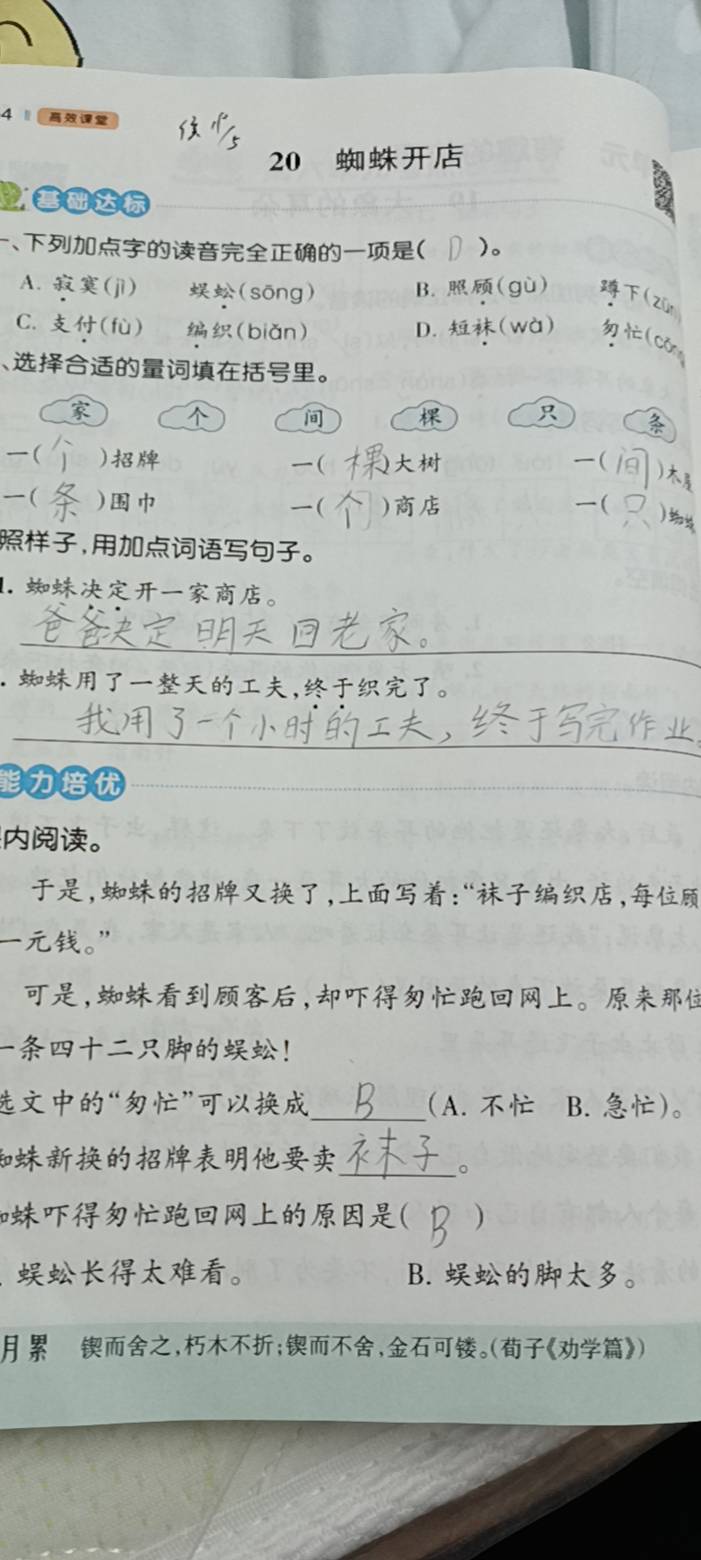 4 高效课堂
20 蜘蛛开店
基础达标
一、下列加点字的读音完全正确的一项是( D )。
A. 寂寞(jì) 蜈蚣(sōng) B. 照顾(gù) 蹲下(zūn
C. 支付(fù) 编织(biǎn) D. 短袜(wà) 匆忙(cōn
、选择合适的量词填在括号里。
家 个 间 棵 只 条
一(个)招牌 一(棵)大树 一(间)木屋
一(条)围巾 一(个)商店 一(只)蜘蛛
照样子,用加点词语写句子。
1. 蜘蛛决定开一家商店。
爸爸决定明天回老家。
. 蜘蛛用了一整天的工夫,终于织完了。
我用了一个小时的工夫,终于写完作业。
能力培优
内阅读。
于是,蜘蛛的招牌又换了,上面写着:“袜子编织店,每位顾
一元钱。”
可是,蜘蛛看到顾客后,却吓得匆忙跑回网上。原来那位
一条四十二只脚的蜈蚣!
选文中的“匆忙”可以换成 B (A. 不忙 B. 急忙)。
蜘蛛新换的招牌表明他要卖 袜子 。
蜘蛛吓得匆忙跑回网上的原因是( B )
蜈蚣长得太难看。 B. 蜈蚣的脚太多。
月累 锲而舍之,朽木不折;锲而不舍,金石可镂。(荀子《劝学篇》)